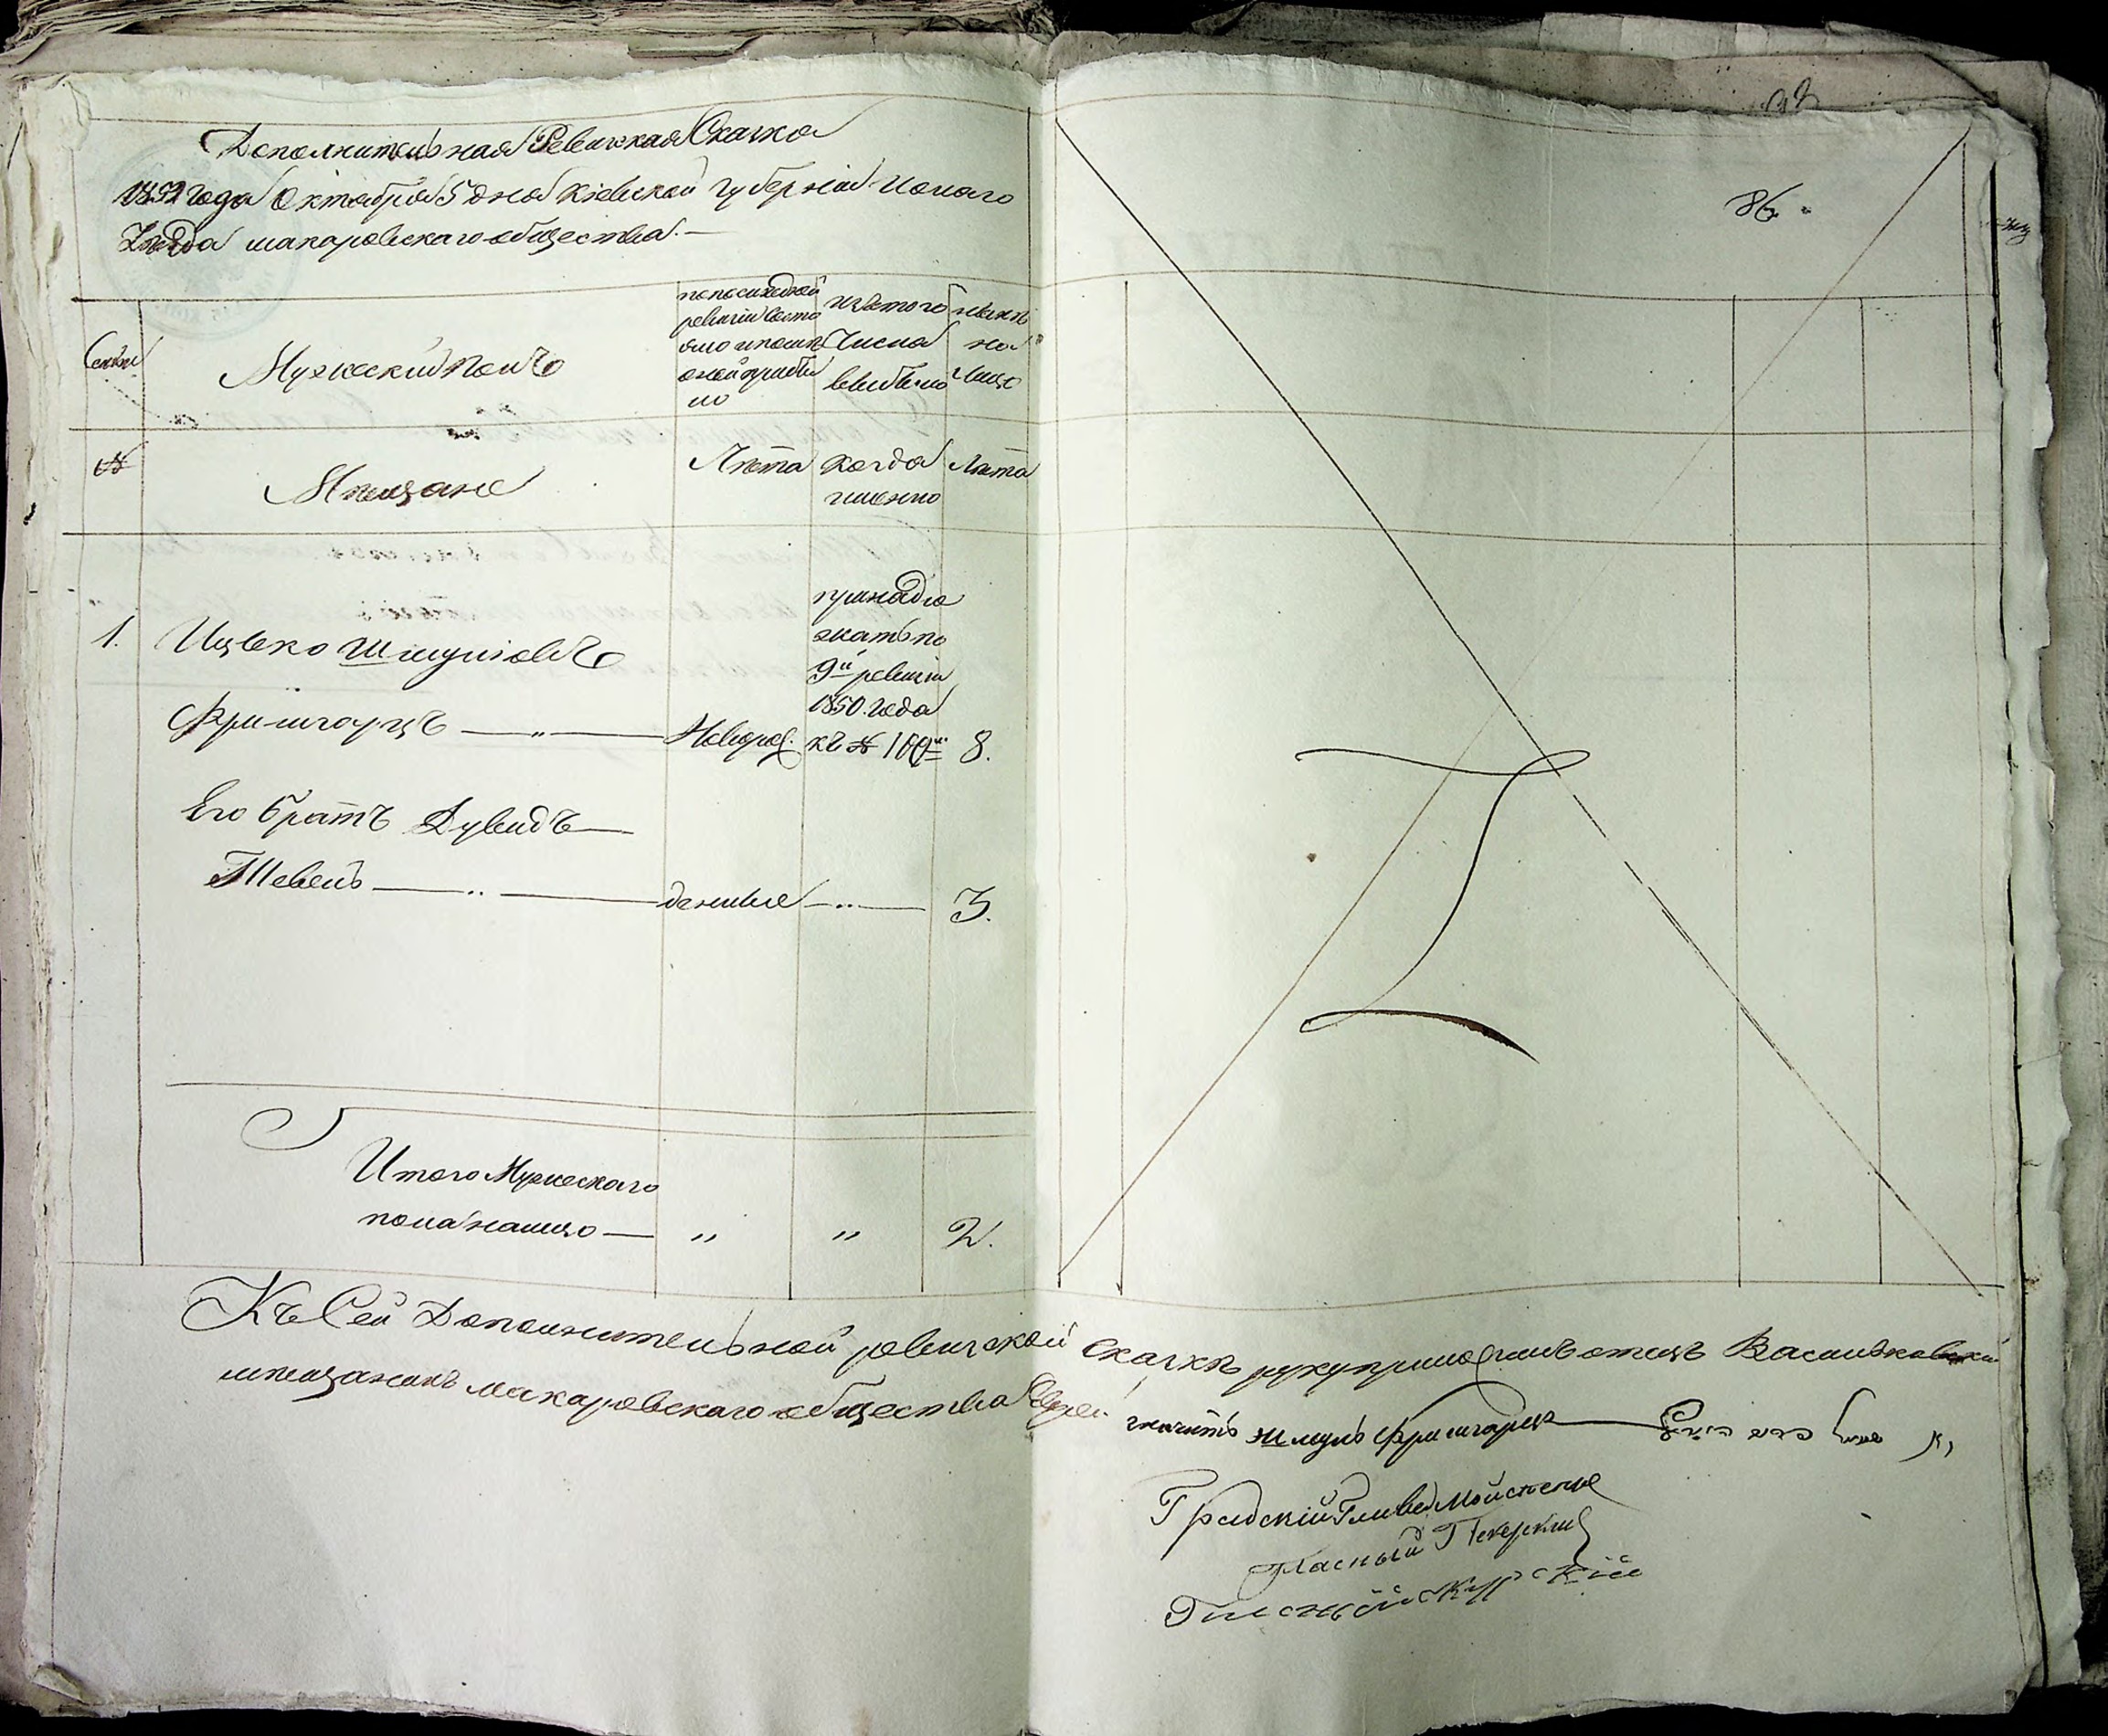 Дополнительная Ревизская Сказка
1852 года Октября 5 дня Кіевской губерніи и онаго
Уезда макаровскаго общества.—
Семьи
Мужескій полъ
по последней
ревизіи состо
яло и после
оной прибы
ло
изъ того
числа
выбыло
ныне
на
лицо
№
Мещане
Лета
когда
именно
Лета
принадле
жатъ по
9й ревизіи
1850. года
1. Ицько Шмулiовъ
Фришгарцъ — „ — Новорož. къ № 100му 8.
Его братъ Дувидъ—
Шевель — „ — данные — „ — 3.
Итого Мужескаго
пола налицо — „ „ 2.
Къ Сей Дополнительной ревизской сказке руку приложилъ отецъ Васильковскій
мещанинъ макаровскаго общества Еврей значитъ Шмуль Фришгарцъ
Градскій Глава
Гласный Печерскій
Гласный Курскій
86.